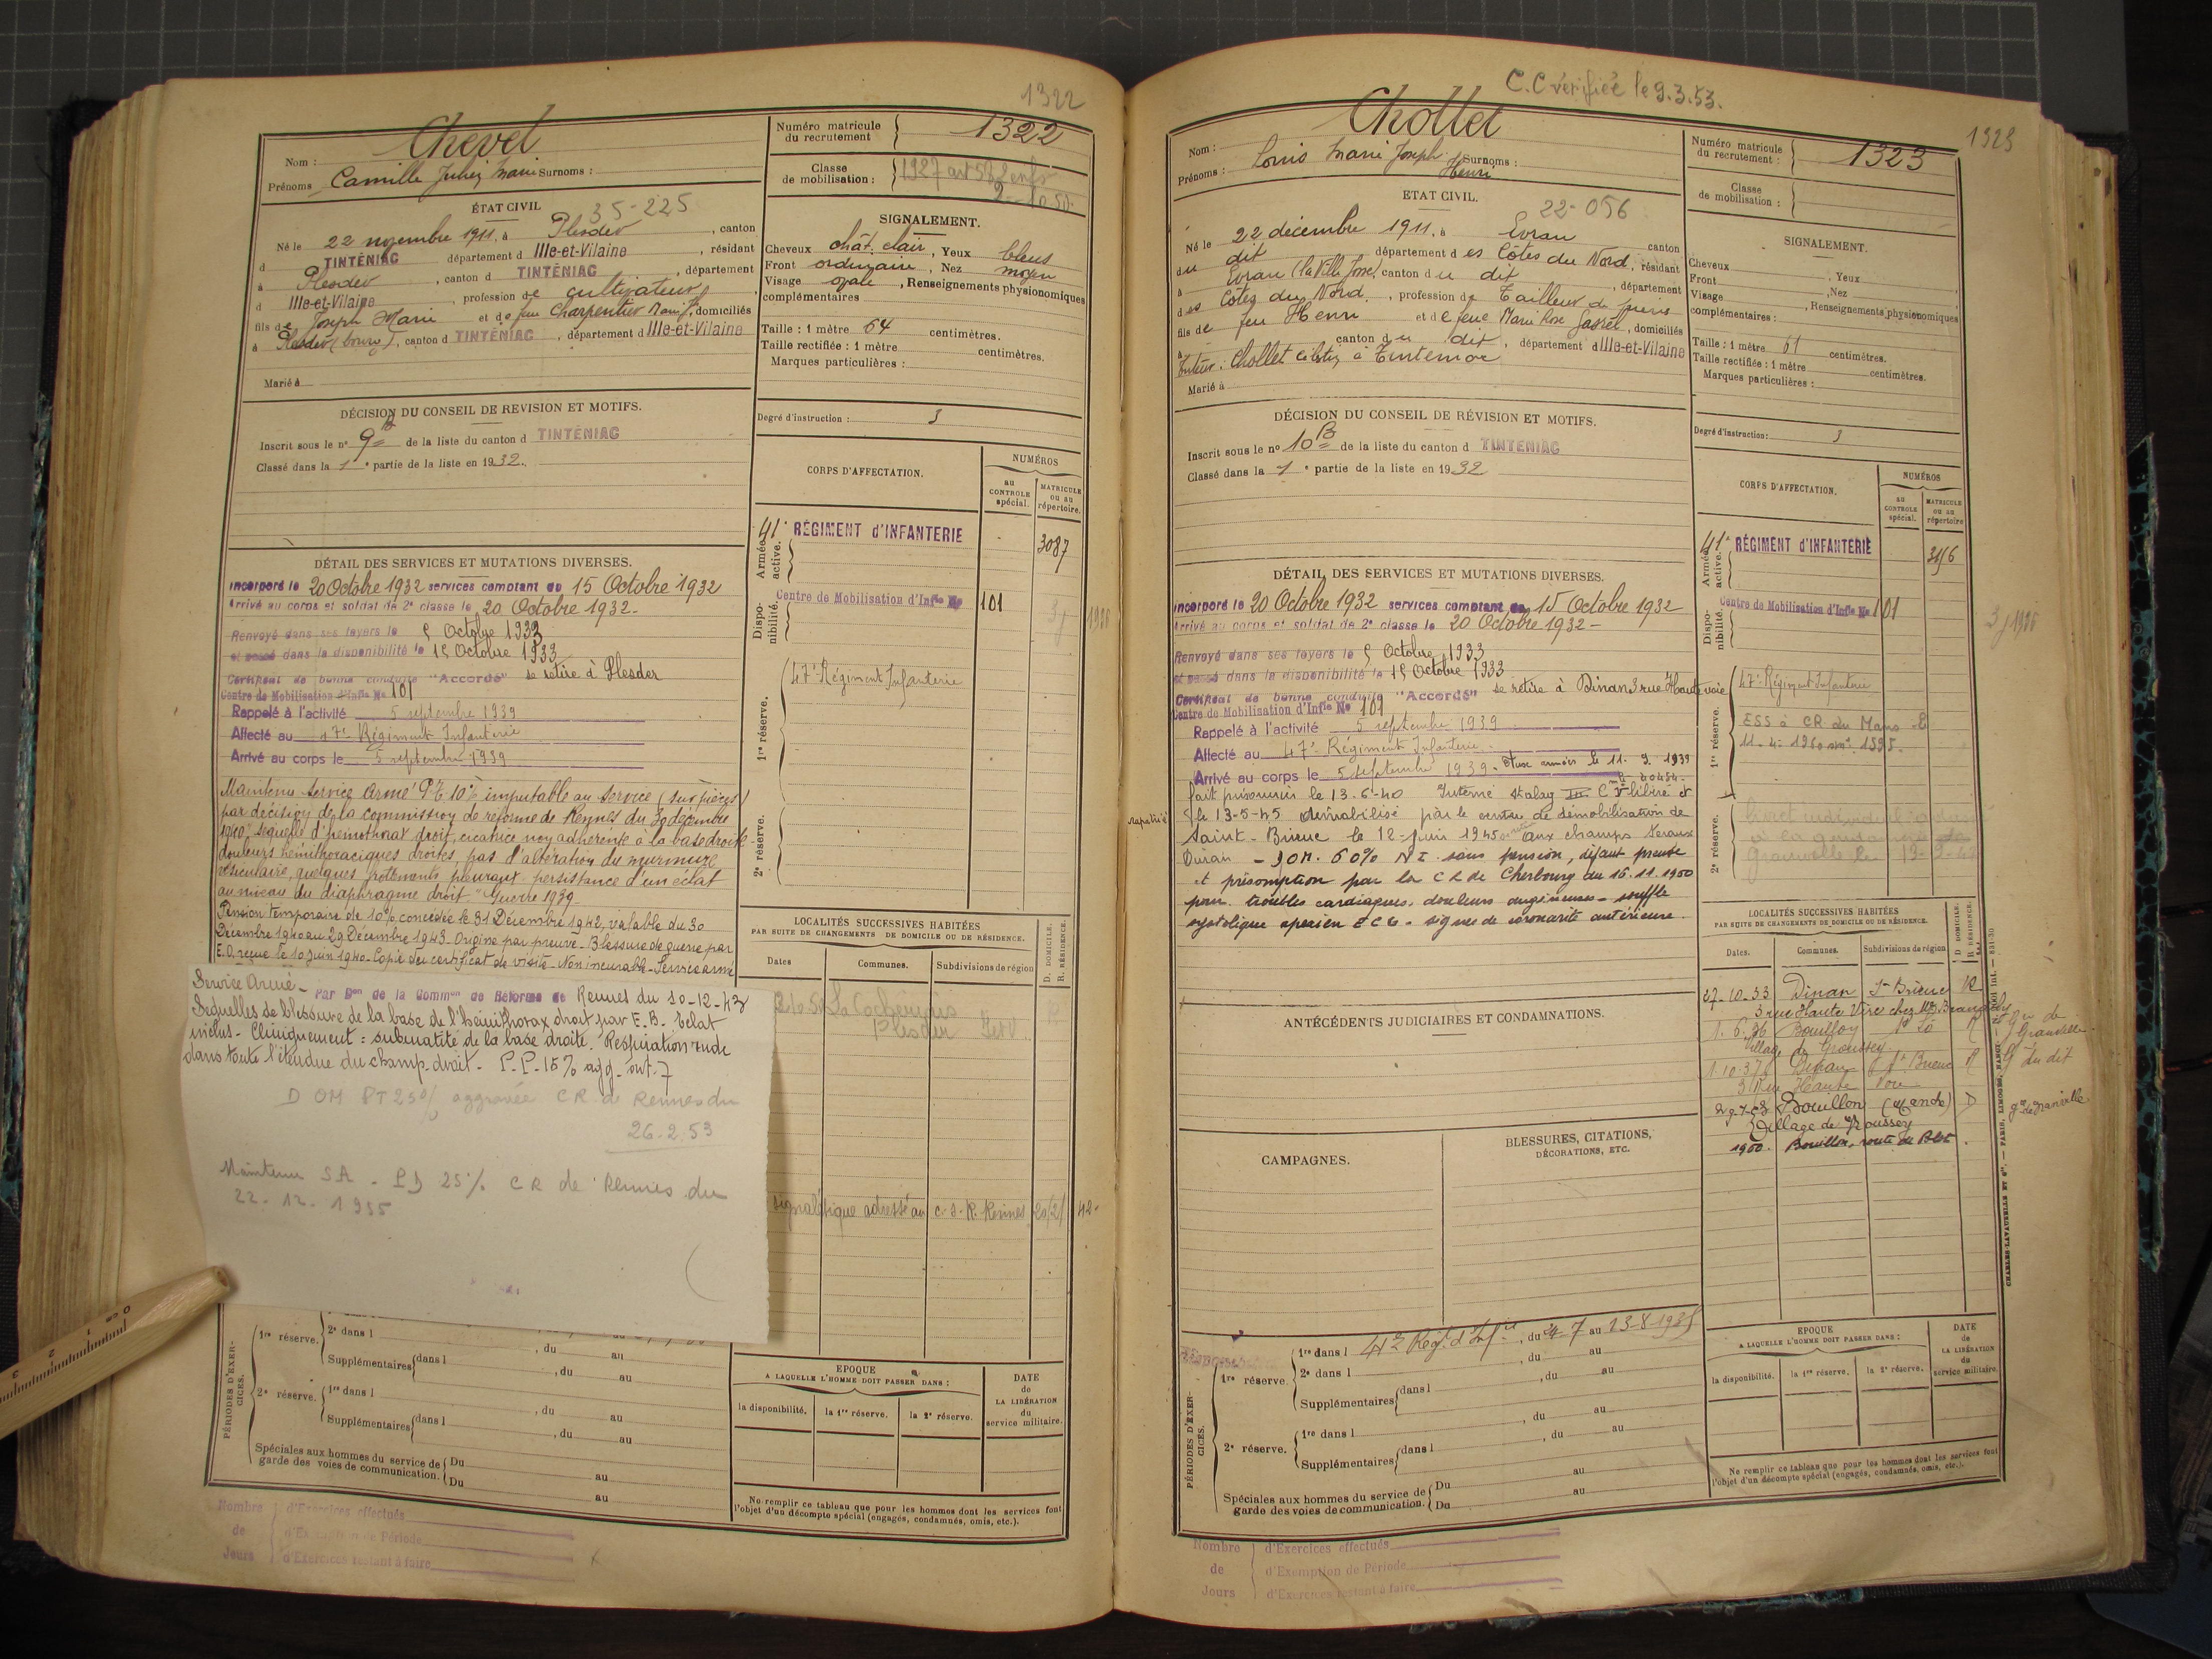 1322
Nom : Chevel
Prénoms Camille Julien Marie Surnoms :
Numéro matricule du recrutement 1322
Classe de mobilisation : 1927 art 58 2 enfs
ÉTAT CIVIL 35-225
Né le 22 novembre 1911, à Plesder, canton
d TINTÉNIAC département d Ille-et-Vilaine, résidant
à Plesder, canton d TINTÉNIAC, département
d Ille-et-Vilaine, profession de cultivateur
fils de Joseph Marie et de feu Charpentier Marie, domiciliés
à Plesder (bourg), canton d TINTÉNIAC, département d Ille-et-Vilaine
Marié à
SIGNALEMENT.
Cheveux chât. clair, Yeux bleus
Front ordinaire, Nez moyen
Visage ovale, Renseignements physionomiques
complémentaires
Taille : 1 mètre 64 centimètres.
Taille rectifiée : 1 mètre centimètres.
Marques particulières :
Degré d'instruction : 3
DÉCISION DU CONSEIL DE REVISION ET MOTIFS.
Inscrit sous le n° 9 B de la liste du canton d TINTÉNIAC
Classé dans la 1e partie de la liste en 1932.
CORPS D'AFFECTATION.
NUMÉROS
au CONTROLE spécial.
MATRICULE ou au répertoire.
Armée active.
41e RÉGIMENT d'INFANTERIE 3087
Disponibilité.
Centre de Mobilisation d'Infie No 101
1re réserve.
47e Régiment Infanterie
2e réserve.
DÉTAIL DES SERVICES ET MUTATIONS DIVERSES.
Incorporé le 20 Octobre 1932 services comptant du 15 Octobre 1932
Arrivé au corps et soldat de 2e classe le 20 Octobre 1932 -
Renvoyé dans ses foyers le 5 Octobre 1933
et passé dans la disponibilité le 15 Octobre 1933
Certificat de bonne conduite "Accordé" se retire à Plesder
Centre de Mobilisation d'Infie No 101
Rappelé à l'activité 5 septembre 1939
Affecté au 47e Régiment Infanterie
Arrivé au corps le 5 septembre 1939
Maintenu Service Armé P.T. 10% imputable au Service (sur pièces)
par décision de la commission de réforme de Rennes du 30 décembre
1940 "séquelle d'hémothorax droit, cicatrice non adhérente à la base droite
douleurs hémithoraciques droites, pas d'altération du murmure
vésiculaire, quelques frottements pleuraux persistance d'un éclat
au niveau du diaphragme droit" Guerre 1939
Pension temporaire de 10% concédée le 31 Décembre 1942, valable du 30
Décembre 1940 au 29 Décembre 1943 - Origine par preuve - Blessure de guerre par
E.O. reçue le 10 Juin 1940 - Copie du certificat de visite - Non incurable - Service armé
Service Armé - Par Don de la Common de Réforme de Rennes du 10-12-43
Sequelles de blessure de la base de l'hémithorax droit par E.B. Eclat
inclus - Cliniquement : submatité de la base droite. Respiration rude
dans toute l'étendue du champ droit - P.P. 15%
D OM PT 25% aggravée CR de Rennes du
26.2.53
Maintenu SA - PD 25% CR de Rennes du
22.12.1955
LOCALITÉS SUCCESSIVES HABITÉES
PAR SUITE DE CHANGEMENTS DE DOMICILE OU DE RÉSIDENCE.
Dates Communes. Subdivisions de région
D. DOMICILE. R. RÉSIDENCE.
Plesder
signalétique adressé au C.S.R. Rennes 20/2/42
PÉRIODES D'EXERCICES.
1re réserve. 2e dans l , du au
Supplémentaires dans l , du au
2e réserve. 1re dans l , du au
Supplémentaires dans l , du au
Spéciales aux hommes du service de garde des voies de communication. Du au
Du au
EPOQUE
A LAQUELLE L'HOMME DOIT PASSER DANS :
la disponibilité. la 1re réserve. la 2e réserve.
DATE de LA LIBÉRATION du service militaire.
Ne remplir ce tableau que pour les hommes dont les services font
l'objet d'un décompte spécial (engagés, condamnés, omis, etc.).
Nombre de Jours
d'Exercices effectués
d'Exemption de Période
d'Exercices restant à faire
C.C vérifiée le 9.3.53.
1323
Nom : Chollet
Prénoms : Louis Marie Joseph Henri Surnoms :
Numéro matricule du recrutement : 1323
Classe de mobilisation :
ETAT CIVIL. 22-056
Né le 22 décembre 1911, à Evran canton
du dit département d es Côtes du Nord, résidant
à Evran (la Ville Josse) canton du dit, département
d es Côtes du Nord, profession de Tailleur de pierres
fils de feu Henri et de feue Marie Rose Gastel, domiciliés
à canton du dit, département d Ille-et-Vilaine
tuteur : Chollet Célestin à Tinténiac
Marié à
SIGNALEMENT.
Cheveux , Yeux
Front , Nez
Visage , Renseignements physionomiques
complémentaires :
Taille : 1 mètre 61 centimètres.
Taille rectifiée : 1 mètre centimètres.
Marques particulières :
Degré d'instruction : 3
DÉCISION DU CONSEIL DE RÉVISION ET MOTIFS.
Inscrit sous le no 10 B de la liste du canton d TINTÉNIAC
Classé dans la 1e partie de la liste en 1932
CORPS D'AFFECTATION.
NUMÉROS
AU CONTROLE spécial.
MATRICULE ou au répertoire
Armée active.
41e RÉGIMENT d'INFANTERIE
Disponibilité.
Centre de Mobilisation d'Infie No 101
1re réserve.
47e Régiment Infanterie
ESS à CR du Mans
2e réserve.
DÉTAIL DES SERVICES ET MUTATIONS DIVERSES.
Incorporé le 20 Octobre 1932 services comptant du 15 Octobre 1932
Arrivé au corps et soldat de 2e classe le 20 Octobre 1932 -
Renvoyé dans ses foyers le 5 Octobre 1933
et passé dans la disponibilité le 15 Octobre 1933
Certificat de bonne conduite "Accordé" se retire à Dinan 3 rue Haute voie
Centre de Mobilisation d'Infie No 101
Rappelé à l'activité 5 septembre 1939
Affecté au 47e Régiment Infanterie
Arrivé au corps le 5 septembre 1939 - Aux armées le 11. 9. 1939
fait prisonnier le 13-6-40 Interné stalag III C libéré et
rapatrié le 13-5-45 démobilisé par le centre de démobilisation de
Saint-Brieuc le 12 juin 1945 aux champs
- 60% NI sans pension, défaut preuve
et présomption par la CR de Cherbourg du 16.11.1950
pour troubles cardiaques, douleurs angineuses - souffle
systolique apexien ECG - signes de coronarite antérieure.
LOCALITÉS SUCCESSIVES HABITÉES
PAR SUITE DE CHANGEMENTS DE DOMICILE OU DE RÉSIDENCE.
Dates. Communes. Subdivisions de région
D DOMICILE. R RÉSIDENCE.
27-10-33 Dinan St Brieuc R
1.6.36 Bouillon St Lô R
Village de Groussey
1.10.37 Dinan St Brieuc R
3 Rue Haute Voie
Bouillon (Manche) D
Village de Groussey
1950. Bouillon, route du
ANTÉCÉDENTS JUDICIAIRES ET CONDAMNATIONS.
CAMPAGNES.
BLESSURES, CITATIONS,
DÉCORATIONS, ETC.
PÉRIODES D'EXERCICES.
1re réserve. 1re dans l 41e Régt d'Infie, du 24-7 au 13-8-1935
2e dans l , du au
Supplémentaires dans l , du au
2e réserve. 1re dans l , du au
Supplémentaires dans l , du au
Spéciales aux hommes du service de garde des voies de communication. Du au
Du au
EPOQUE
A LAQUELLE L'HOMME DOIT PASSER DANS :
la disponibilité. la 1re réserve. la 2e réserve.
DATE de LA LIBÉRATION du service militaire.
Ne remplir ce tableau que pour les hommes dont les services font
l'objet d'un décompte spécial (engagés, condamnés, omis, etc.).
CHARLES-LAVAUZELLE ET Cie. — PARIS, LIMOGES, NANCY
Nombre de Jours
d'Exercices effectués
d'Exemption de Période
d'Exercices restant à faire